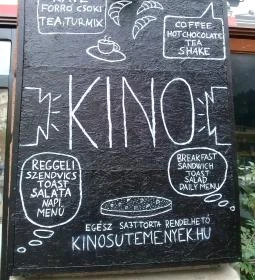 FORRÓ CSOKI
TEA, TURMIX
COFFEE
HOT CHOCOLATE
TEA
SHAKE
KINO
REGGELI
SZENDVICS
TOAST
SALÁTA
NAPI
MENÜ
BREAKFAST
SANDWICH
TOAST
SALAD
DAILY MENU
EGÉSZ SAJTTORTA RENDELHETŐ
KINOSUTEMENYEK.HU